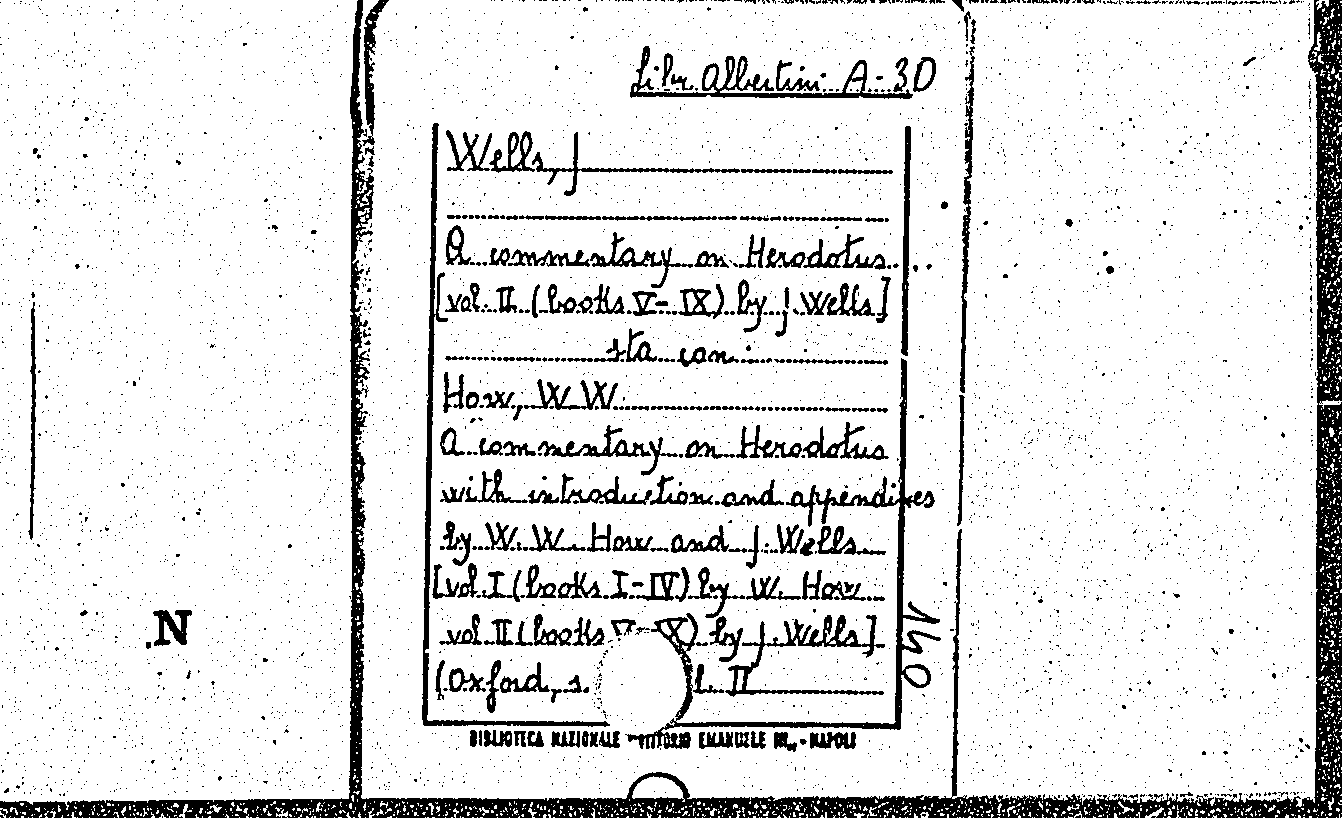 Libr. Albertini A-30
Wells, J
A commentary on Herodotus...
[vol. II (books V-IX) by J. Wells]
sta con
How, W. W.
A commentary on Herodotus
with introduction and appendices
by W. W. How and J. Wells
[vol. I (books I-IV) by W. How
vol. II (books V- X) by J. Wells]
(Oxford, s. l. II
BIBLIOTECA NAZIONALE VITTORIO EMANUELE III - NAPOLI
140
N